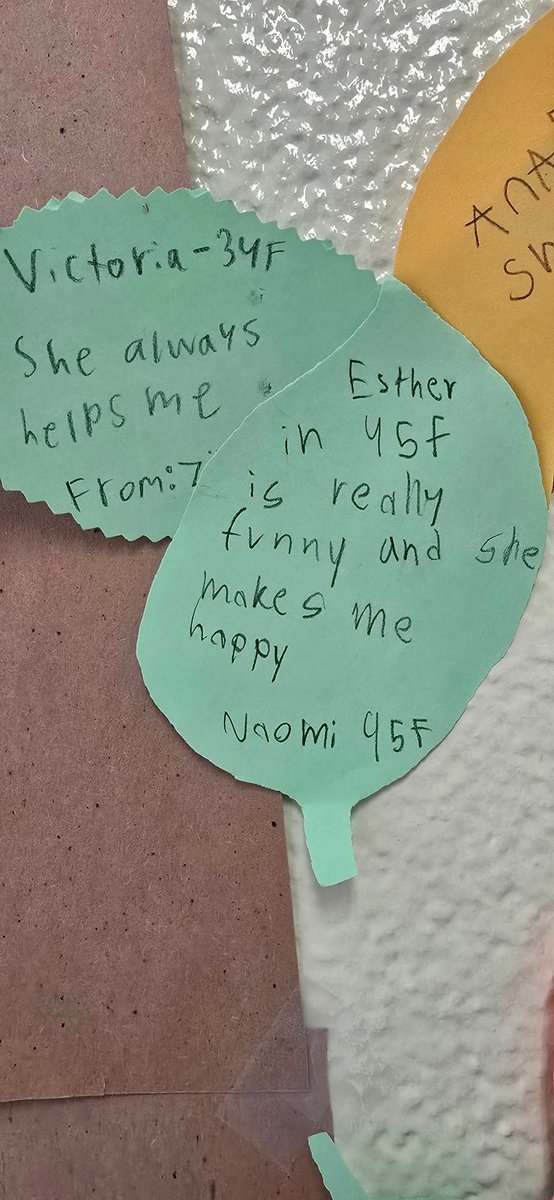 Victoria-34F
She always
helps me
From:
Esther
in 45F
is really
funny and she
makes me
happy
Naomi 45F